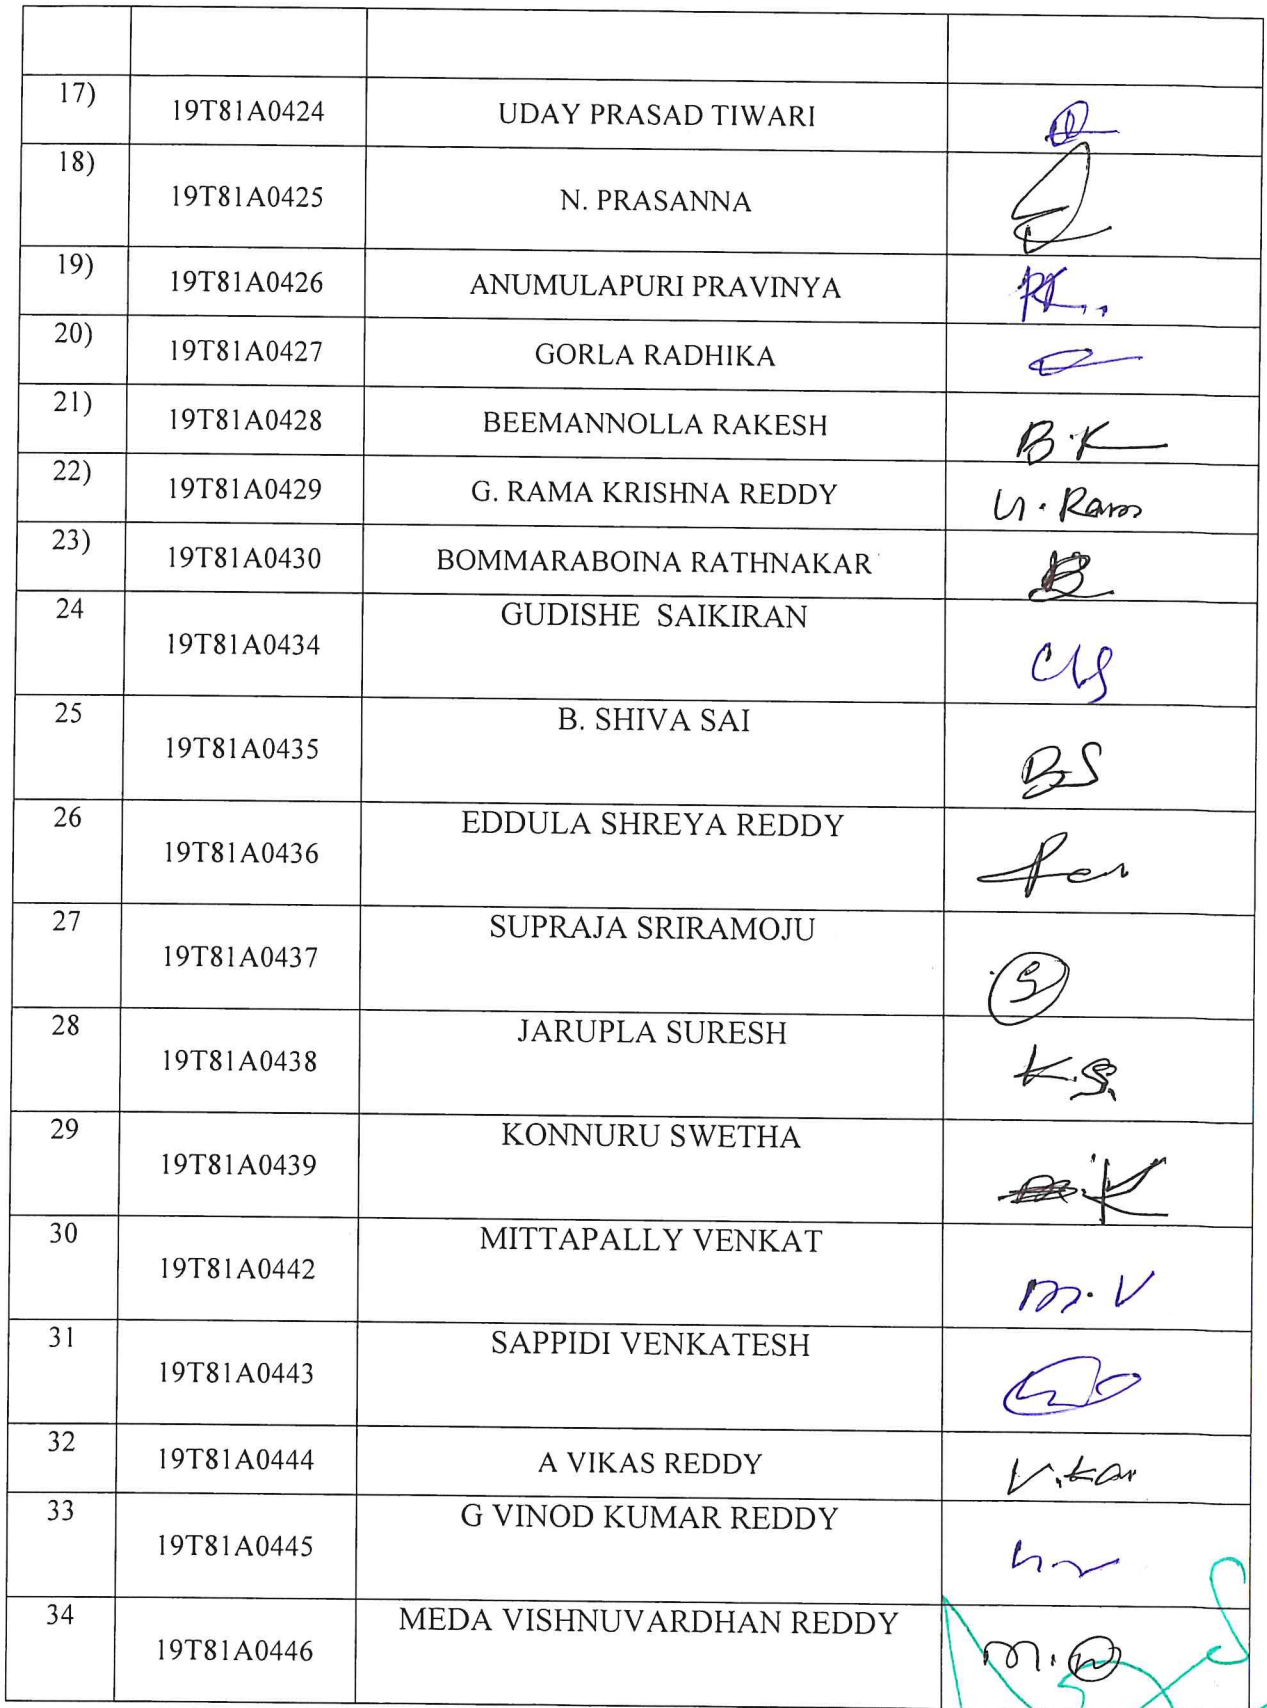 17) 19T81A0424 UDAY PRASAD TIWARI
18) 19T81A0425 N. PRASANNA
19) 19T81A0426 ANUMULAPURI PRAVINYA
20) 19T81A0427 GORLA RADHIKA
21) 19T81A0428 BEEMANNOLLA RAKESH B.K
22) 19T81A0429 G. RAMA KRISHNA REDDY
23) 19T81A0430 BOMMARABOINA RATHNAKAR B
24 19T81A0434 GUDISHE SAIKIRAN
25 19T81A0435 B. SHIVA SAI BS
26 19T81A0436 EDDULA SHREYA REDDY
27 19T81A0437 SUPRAJA SRIRAMOJU S
28 19T81A0438 JARUPLA SURESH K.S.
29 19T81A0439 KONNURU SWETHA K
30 19T81A0442 MITTAPALLY VENKAT M.V
31 19T81A0443 SAPPIDI VENKATESH
32 19T81A0444 A VIKAS REDDY
33 19T81A0445 G VINOD KUMAR REDDY
34 19T81A0446 MEDA VISHNUVARDHAN REDDY